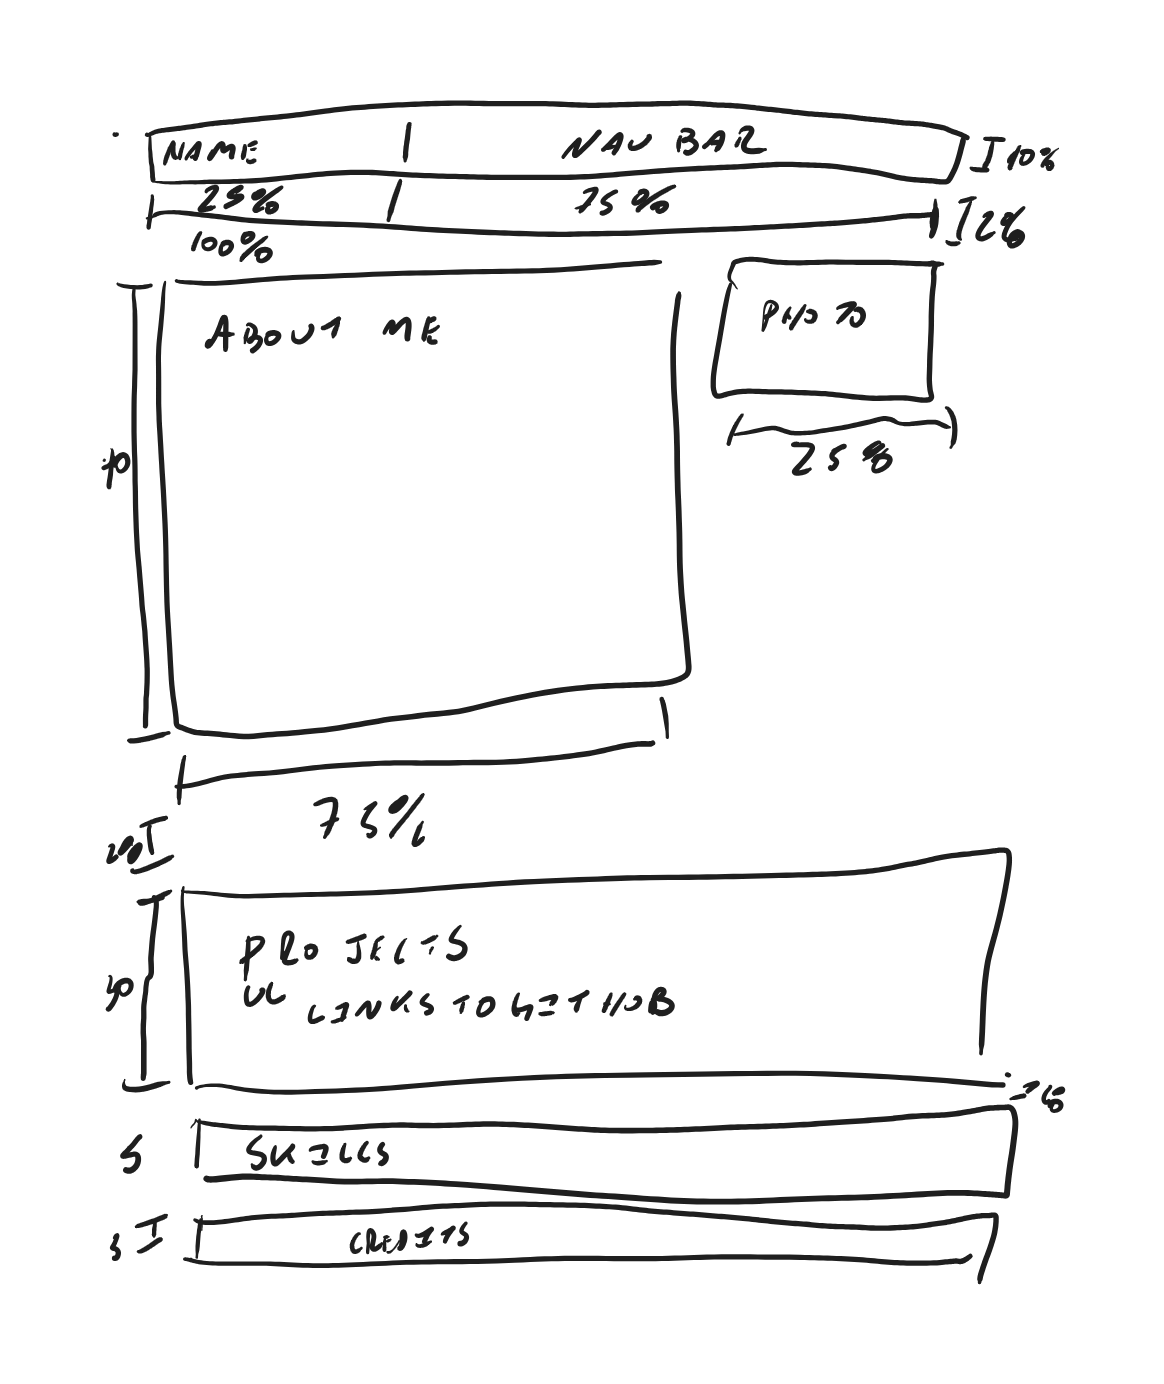 NAME | NAV BAR
10%
25% / 75%
2%
100%
ABOUT ME
PHOTO
25%
75%
PROJECTS
UL
LINKS TO GITHUB
SKILLS
5
CREDITS
5